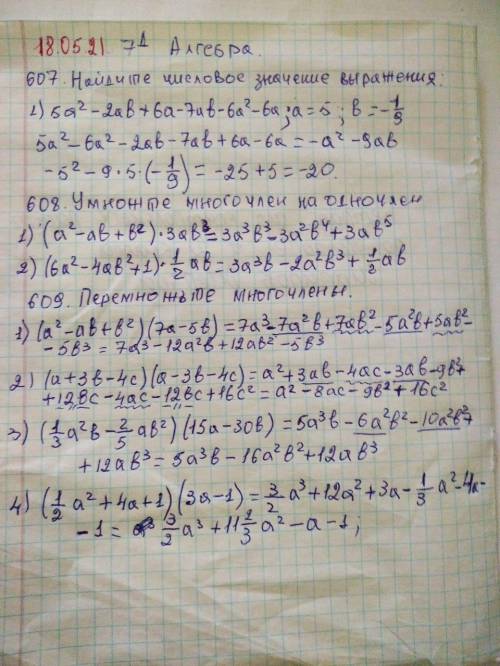 18.05.21. 7Д Алгебра.
607. Найдите числовое значение выражения:
1) 5a²-2ab+6a-7ab-6a²-6a; a=5; b=-1/9
5a²-6a²-2ab-7ab+6a-6a=-a²-9ab
-5²-9·5·(-1/9)=-25+5=-20.
608. Умножте многочлен на одночлен
1) (a²-ab+b²)·3ab³=3a³b³-3a²b⁴+3ab⁵
2) (6a²-4ab²+1)·1/2ab=3a³b-2a²b³+1/2ab
609. Перемножьте многочлены.
1) (a²-ab+b²)(7a-5b)=7a³-7a²b+7ab²-5a²b+5ab²-
-5b³=7a³-12a²b+12ab²-5b³
2) (a+3b-4c)(a-3b-4c)=a²+3ab-4ac-3ab-9b²+
+12bc-4ac-12bc+16c²=a²-8ac-9b²+16c²
3) (1/3a²b-2/5ab²)(15a-30b)=5a³b-6a²b²-10a²b²+
+12ab³=5a³b-16a²b²+12ab³
4) (1/2a²+4a+1)(3a-1)=3/2a³+12a²+3a-1/3a²-4a-
-1=3/2a³+11 2/3a²-a-1;